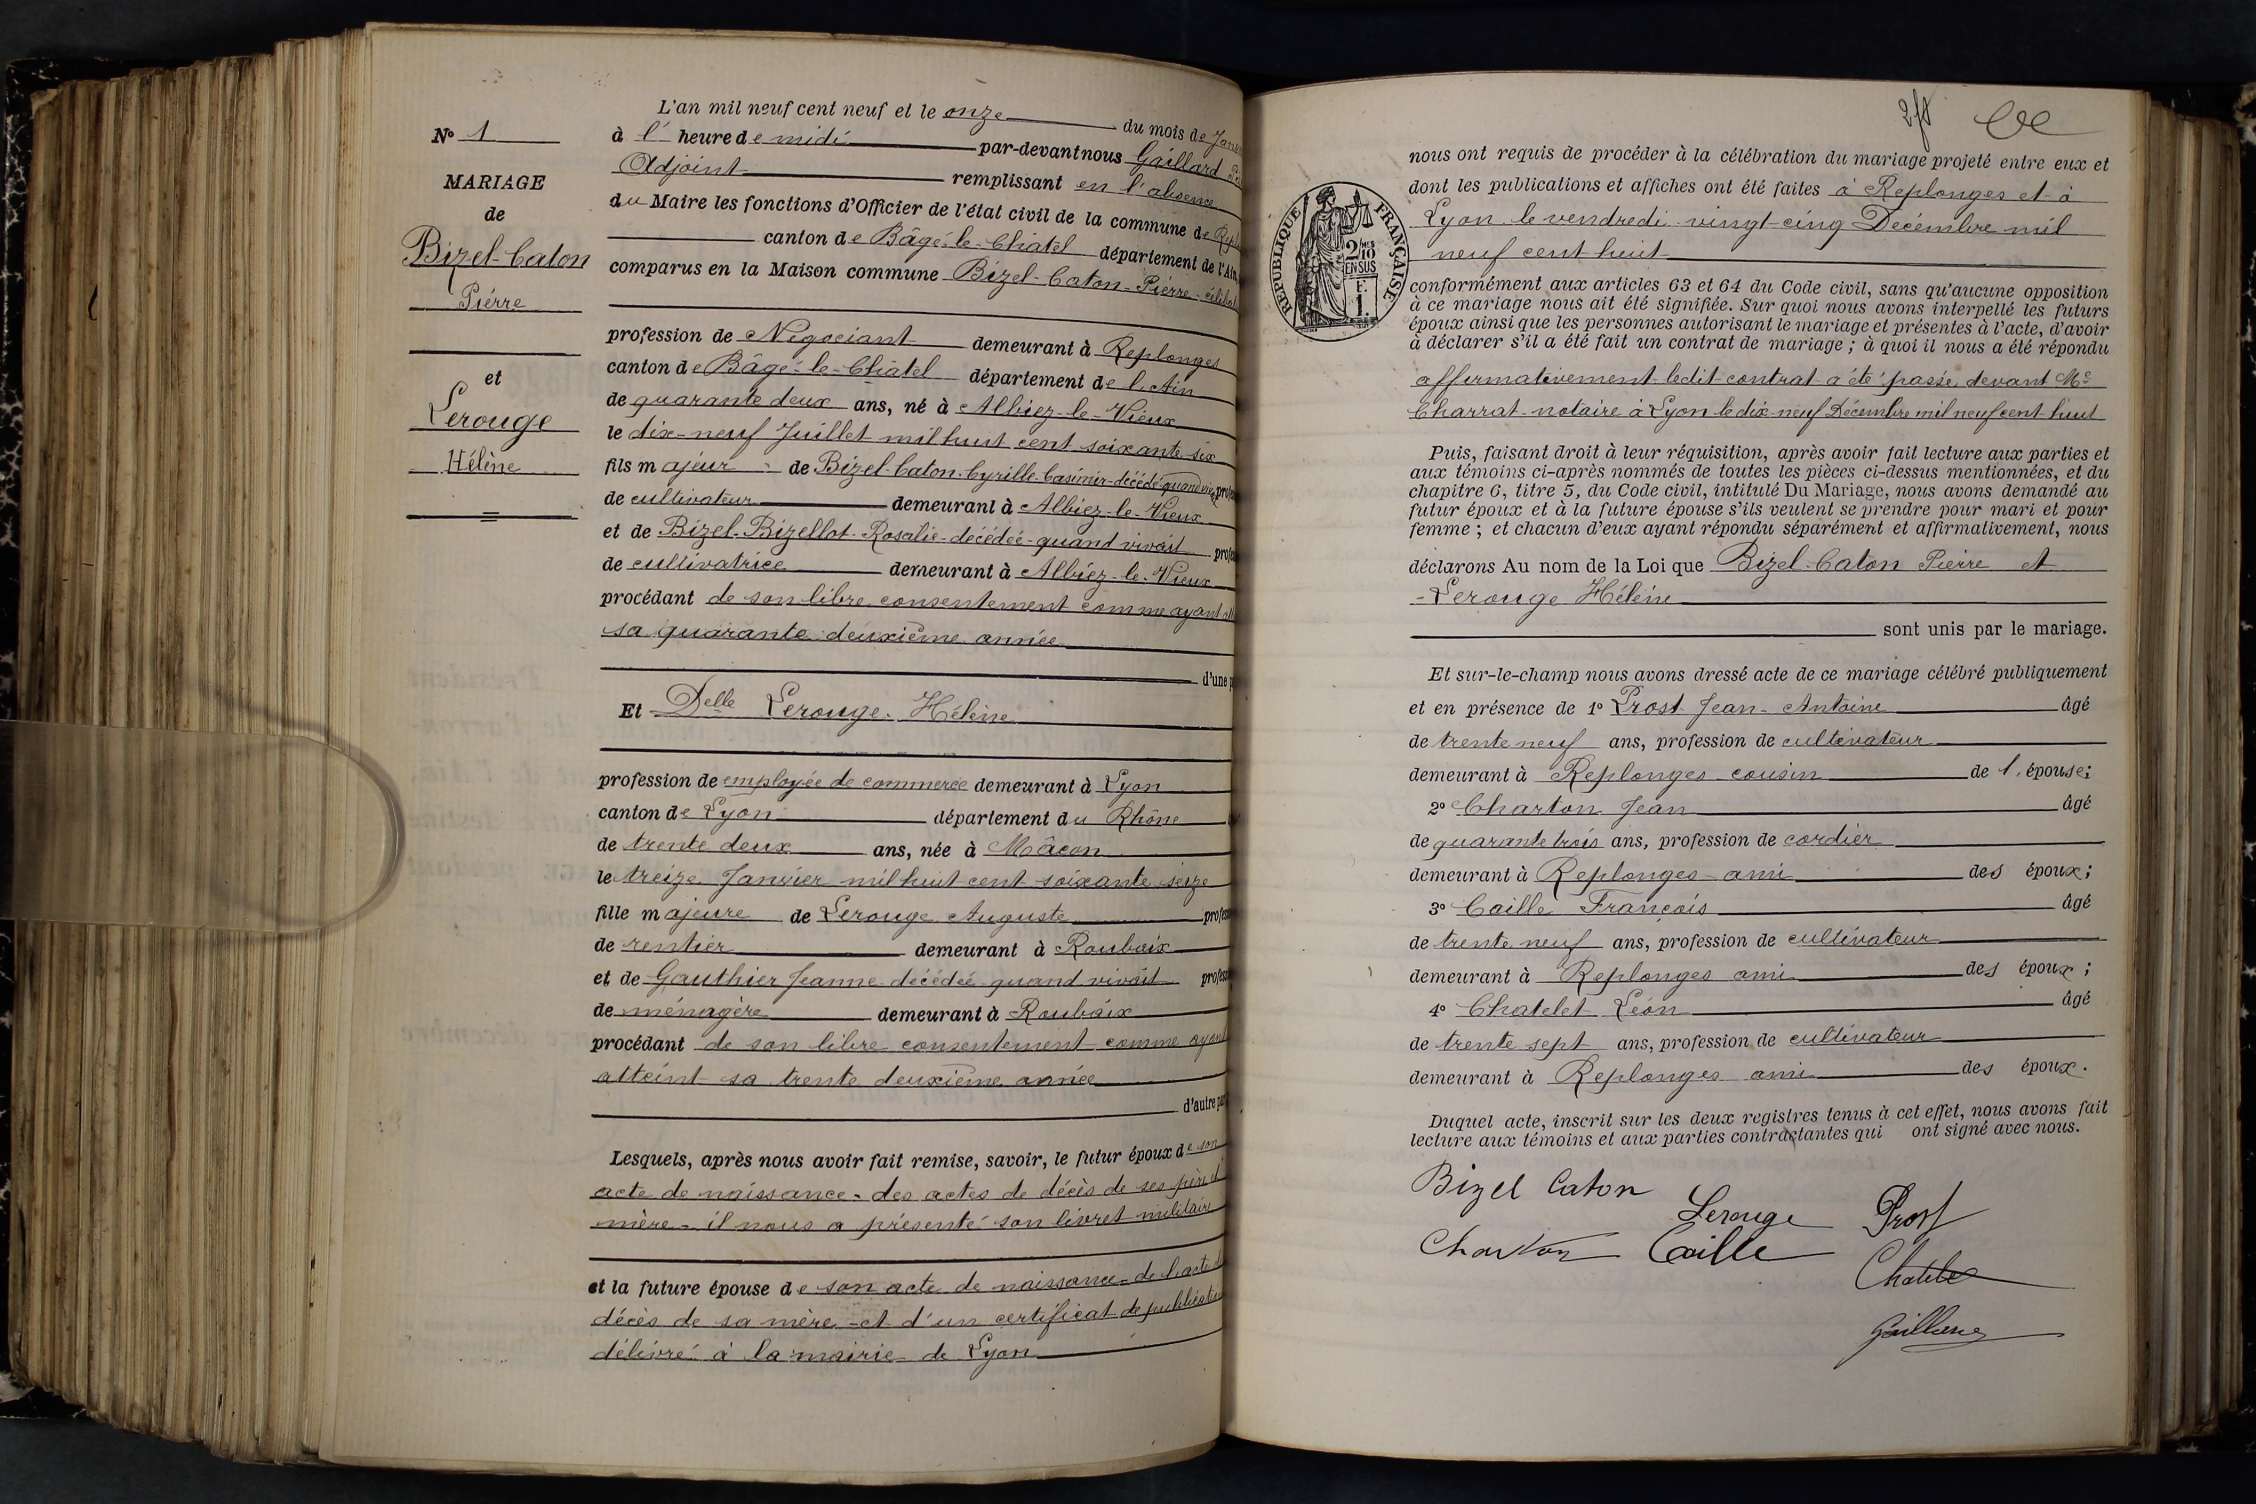 N° 1
MARIAGE
de
Bizel-Caton
Pierre
et
Lerouge
Hélène
L'an mil neuf cent neuf et le onze du mois de
à l' heure de midi par-devant nous Gaillard
Adjoint remplissant en l'absence
du Maire les fonctions d'Officier de l'état civil de la commune de
canton de Bâgé-le-Chatel département de l'Ain
comparus en la Maison commune Bizel-Caton-Pierre-
profession de Négociant demeurant à Replonges
canton de Bâgé-le-Chatel département de l'Ain
de quarante deux ans, né à Albiez-le-Vieux
le dix-neuf Juillet mil huit cent soixante six
fils majeur de Bizel-Caton-Cyrille-Casimir-décédé-quand
de cultivateur demeurant à Albiez-le-Vieux
et de Bizel-Bizellot-Rosalie-décédée-quand vivait
de cultivatrice demeurant à Albiez-le-Vieux
procédant de son libre consentement comme ayant
sa quarante deuxième année
d'une
Et Delle Lerouge-Hélène
profession de employée de commerce demeurant à Lyon
canton de Lyon département du Rhône
de trente deux ans, née à Mâcon
le treize Janvier mil huit cent soixante seize
fille majeure de Lerouge Auguste
de rentier demeurant à Roubaix
et de Gauthier Jeanne décédée quand vivait
de ménagère demeurant à Roubaix
procédant de son libre consentement comme ayant
atteint sa trente deuxième année
d'autre
Lesquels, après nous avoir fait remise, savoir, le futur époux de son
acte de naissance-des actes de décès de ses père et
mère-il nous a présenté son livret militaire
et la future épouse de son acte de naissance-de l'acte de
décès de sa mère-et d'un certificat de
délivré à la mairie de Lyon
RÉPUBLIQUE FRANÇAISE
2/10
EN SUS
F.
1.
nous ont requis de procéder à la célébration du mariage projeté entre eux et
dont les publications et affiches ont été faites à Replonges et à
Lyon le vendredi vingt-cinq Décembre mil
neuf cent huit
conformément aux articles 63 et 64 du Code civil, sans qu'aucune opposition
à ce mariage nous ait été signifiée. Sur quoi nous avons interpellé les futurs
époux ainsi que les personnes autorisant le mariage et présentes à l'acte, d'avoir
à déclarer s'il a été fait un contrat de mariage ; à quoi il nous a été répondu
affirmativement-ledit contrat a été passé devant Me
Charrat notaire à Lyon le dix-neuf Décembre mil neuf cent huit
Puis, faisant droit à leur réquisition, après avoir fait lecture aux parties et
aux témoins ci-après nommés de toutes les pièces ci-dessus mentionnées, et du
chapitre 6, titre 5, du Code civil, intitulé Du Mariage, nous avons demandé au
futur époux et à la future épouse s'ils veulent se prendre pour mari et pour
femme ; et chacun d'eux ayant répondu séparément et affirmativement, nous
déclarons Au nom de la Loi que Bizel-Caton Pierre et
-Lerouge Hélène
sont unis par le mariage.
Et sur-le-champ nous avons dressé acte de ce mariage célébré publiquement
et en présence de 1° Prost Jean-Antoine âgé
de trente neuf ans, profession de cultivateur
demeurant à Replonges cousin de l'épouse;
2° Charton Jean âgé
de quarante trois ans, profession de cordier
demeurant à Replonges ami des époux;
3° Caille François âgé
de trente neuf ans, profession de cultivateur
demeurant à Replonges ami des époux;
4° Chatelet Léon âgé
de trente sept ans, profession de cultivateur
demeurant à Replonges ami des époux.
Duquel acte, inscrit sur les deux registres tenus à cet effet, nous avons fait
lecture aux témoins et aux parties contractantes qui ont signé avec nous.
Bizel Caton
Lerouge Prost
Charton Caille